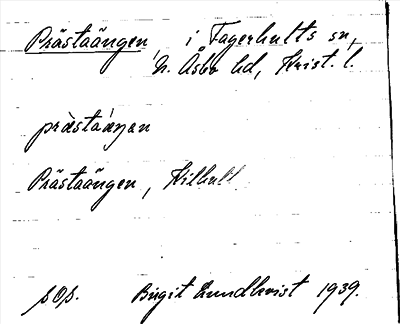 Prästaängen, i Fagerhults sn,
N. Åsbo hd, Krist. l.
prästaäŋan
Prästaängen, Killhult
sOs. Birgit Lundkvist 1939.